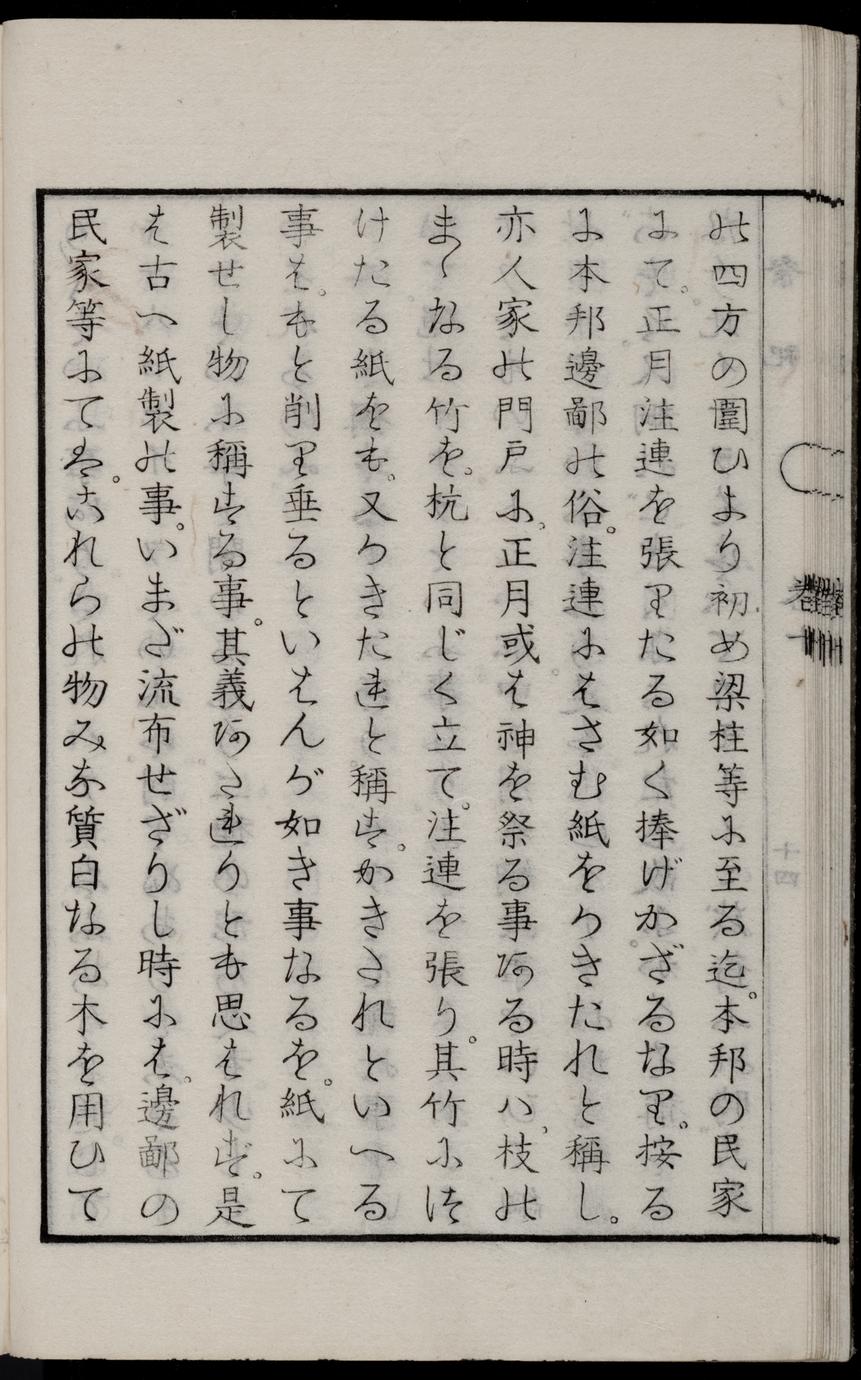 の四方の圍ひより初め梁柱等に至る迄。本邦の民家
にて。正月注連を張りたる如く捧げかざるなり。按る
に本邦邊鄙の俗。注連にはさむ紙をかきたれと稱し。
亦人家の門戸に、正月或は神を祭る事ある時ハ、枝の
まゝなる竹を。杭と同じく立て。注連を張り。其竹につ
けたる紙をも。又かきたれと稱す。かきたれといへる
事は。もと削り垂るといはんが如き事なるを。紙にて
製せし物に稱する事。其義あたれりとも思はれず。是
は古へ紙製の事。いまだ流布せざりし時には、邊鄙の
民家等にては。これらの物みな質白なる木を用ひて